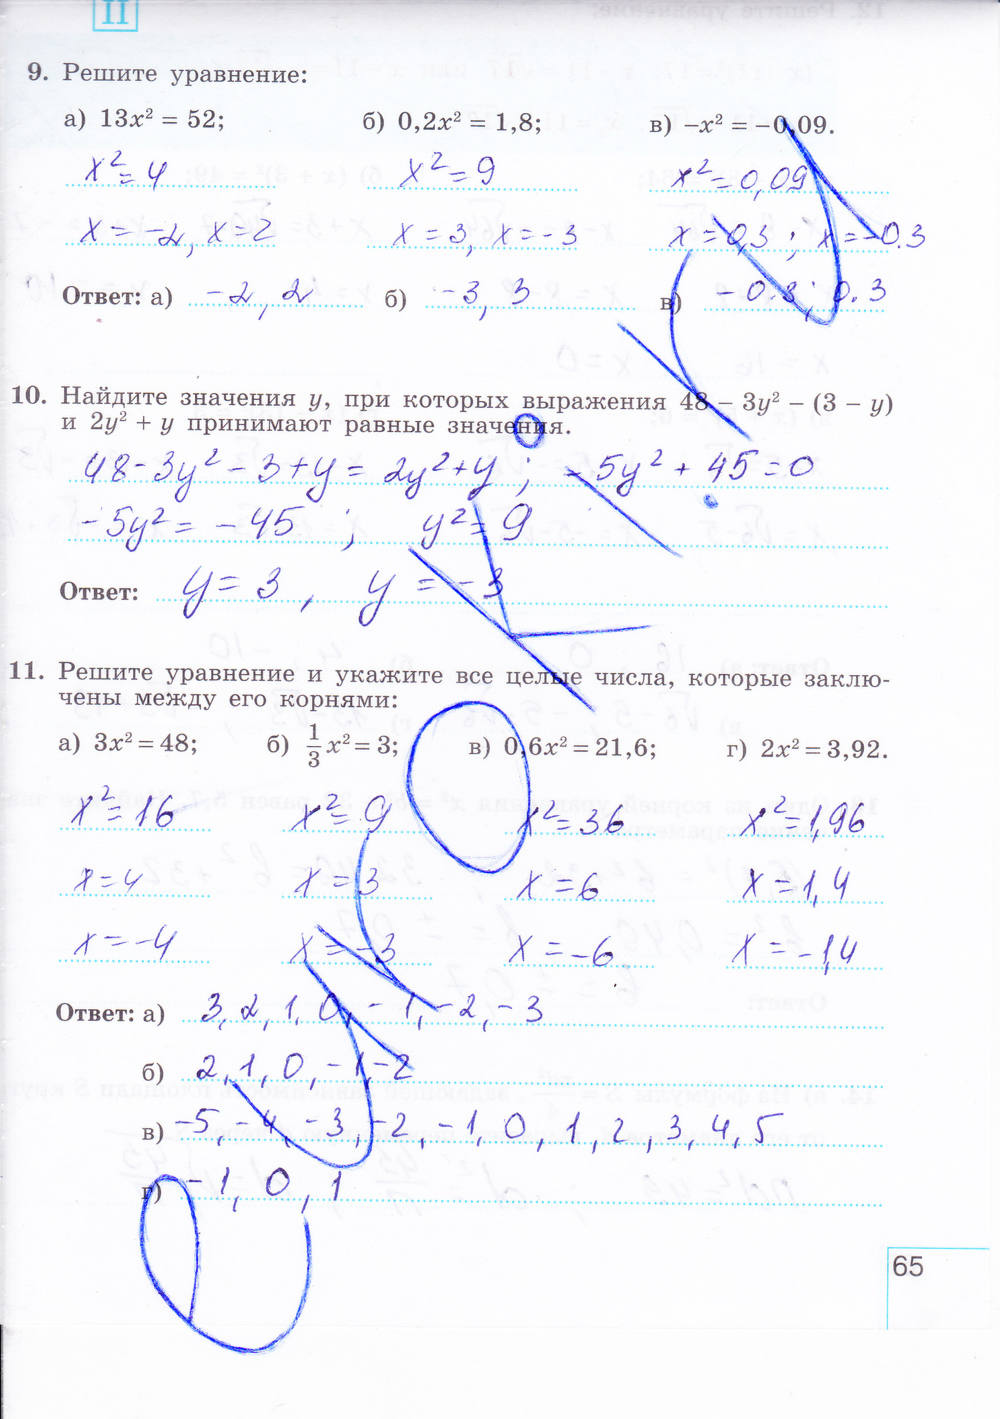 II
9. Решите уравнение:
а) 13x² = 52; б) 0,2x² = 1,8; в) −x² = −0,09.
x² = 4 x² = 9 x² = 0,09
x = −2, x = 2 x = 3, x = −3 x = 0,3 ; x = −0.3
Ответ: а) −2, 2 б) −3, 3 в) −0.3 ; 0.3
10. Найдите значения y, при которых выражения 48 − 3y² − (3 − y)
и 2y² + y принимают равные значения.
48 − 3y² − 3 + y = 2y² + y ; −5y² + 45 = 0
−5y² = −45 ; y² = 9
Ответ: y = 3 , y = −3
11. Решите уравнение и укажите все целые числа, которые заклю-
чены между его корнями:
а) 3x² = 48; б) 1/3 x² = 3; в) 0,6x² = 21,6; г) 2x² = 3,92.
x² = 16 x² = 9 x² = 36 x² = 1,96
x = 4 x = 3 x = 6 x = 1,4
x = −4 x = −3 x = −6 x = −1,4
Ответ: а) 3, 2, 1, 0, −1, −2, −3
б) 2, 1, 0, −1, −2
в) −5, −4, −3, −2, −1, 0, 1, 2, 3, 4, 5
г) −1, 0, 1
65